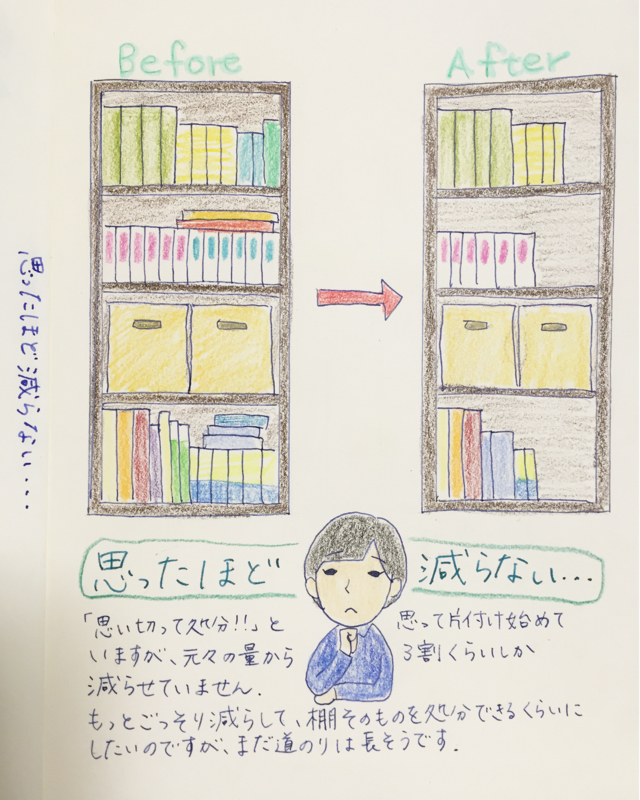 Before
After
思ったほど減らない...
思ったほど 減らない...
「思い切って処分!!」と 思って片付け始めて
いますが、元々の量から 3割くらいしか
減らせていません.
もっとごっそり減らして、棚そのものを処分できるくらいに
したいのですが、まだ道のりは長そうです.